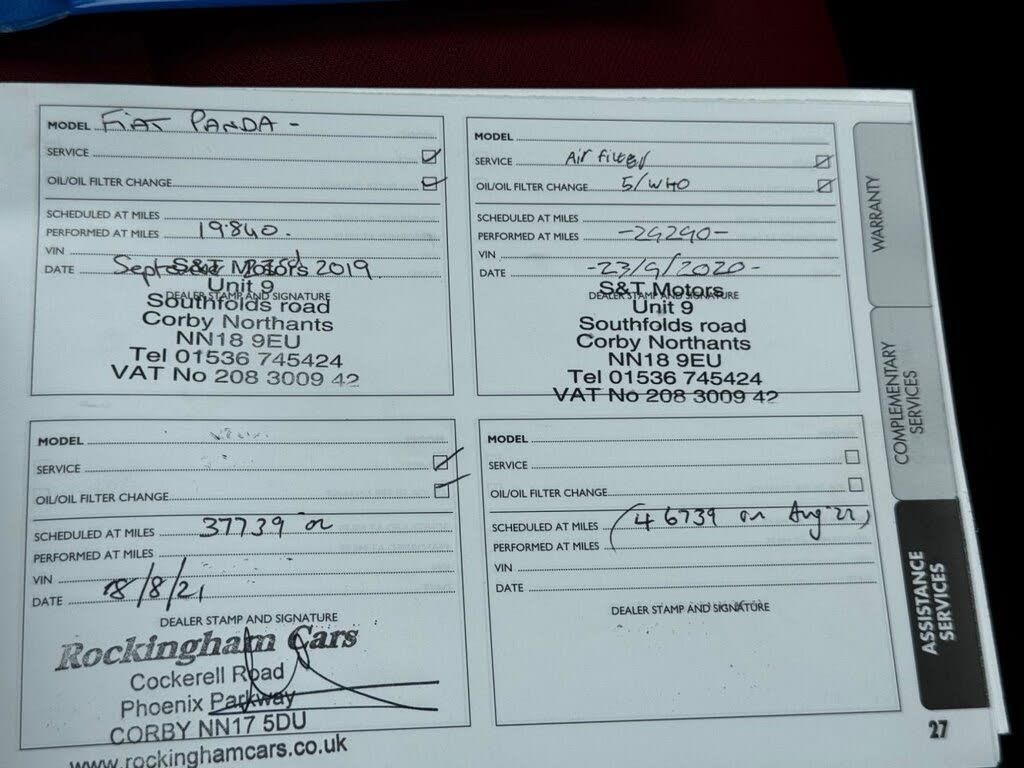 MODEL FIAT PANDA -
SERVICE
OIL/OIL FILTER CHANGE
SCHEDULED AT MILES
PERFORMED AT MILES 19840.
VIN
DATE September 2019
S&T Motors
DEALER STAMP AND SIGNATURE
Unit 9
Southfolds road
Corby Northants
NN18 9EU
Tel 01536 745424
VAT No 208 3009 42
MODEL
SERVICE Air filter
OIL/OIL FILTER CHANGE 5/W40
SCHEDULED AT MILES
PERFORMED AT MILES -29290-
VIN
DATE -23/9/2020-
S&T Motors
DEALER STAMP AND SIGNATURE
Unit 9
Southfolds road
Corby Northants
NN18 9EU
Tel 01536 745424
VAT No 208 3009 42
MODEL
SERVICE
OIL/OIL FILTER CHANGE
SCHEDULED AT MILES 37739 or
PERFORMED AT MILES
VIN
DATE 18/8/21
DEALER STAMP AND SIGNATURE
Rockingham Cars
Cockerell Road
Phoenix Parkway
CORBY NN17 5DU
www.rockinghamcars.co.uk
MODEL
SERVICE
OIL/OIL FILTER CHANGE
SCHEDULED AT MILES (46739 or Aug 22)
PERFORMED AT MILES
VIN
DATE
DEALER STAMP AND SIGNATURE
WARRANTY
COMPLEMENTARY
SERVICES
ASSISTANCE
SERVICES
27